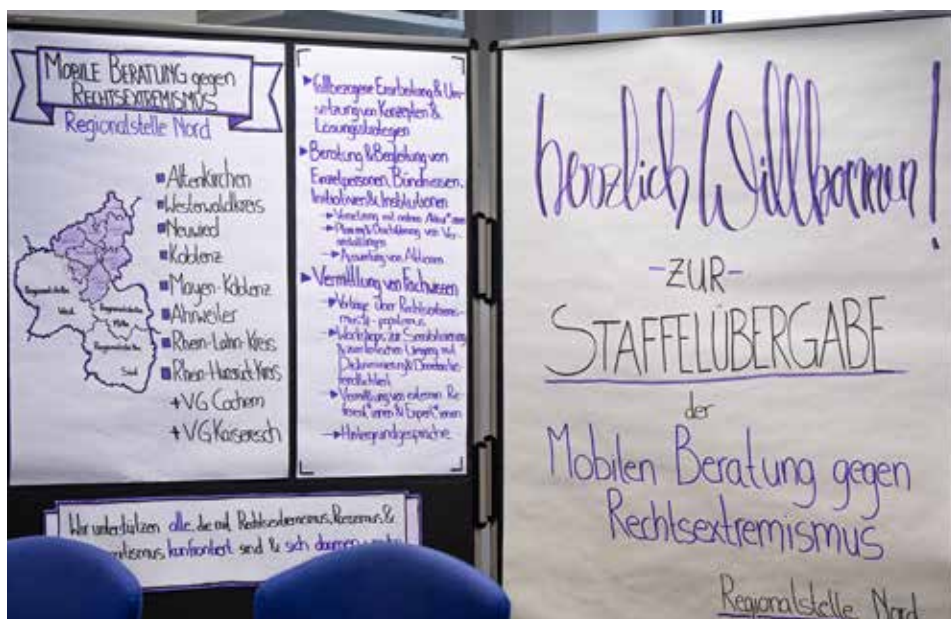 MOBILE BERATUNG gegen
RECHTSEXTREMISMUS
Regionalstelle Nord
Altenkirchen
Westerwaldkreis
Neuwied
Koblenz
Mayen-Koblenz
Ahrweiler
Rhein-Lahn-Kreis
Rhein-Hunsrück-Kreis
+ VG Cochem
+ VG Kaisersesch
Regionalstelle
West
Regionalstelle
Mitte
Regionalstelle
Süd
Fallbezogene Erarbeitung & Um-
setzung von Konzepten &
Lösungsstrategien
Beratung & Begleitung von
Einzelpersonen, Bündnissen,
Initiativen & Institutionen
Vernetzung mit anderen Akteur*innen
Planung & Durchführung von Ver-
anstaltungen
Auswertung von Aktionen
Vermittlung von Fachwissen
Vorträge über Rechtsextremis-
mus & -populismus
Workshops zur Sensibilisierung
Umgang mit
Diskriminierung & Demokratie-
feindlichkeit
Vermittlung von externen Re-
ferent*innen & Expert*innen
Hintergrundgespräche
Wir unterstützen alle, die mit Rechtsextremismus, Rassismus, &
konfrontiert sind & sich dagegen
herzlich Willkommen!
-ZUR-
STAFFELÜBERGABE
der
Mobilen Beratung gegen
Rechtsextremismus
Regionalstelle Nord